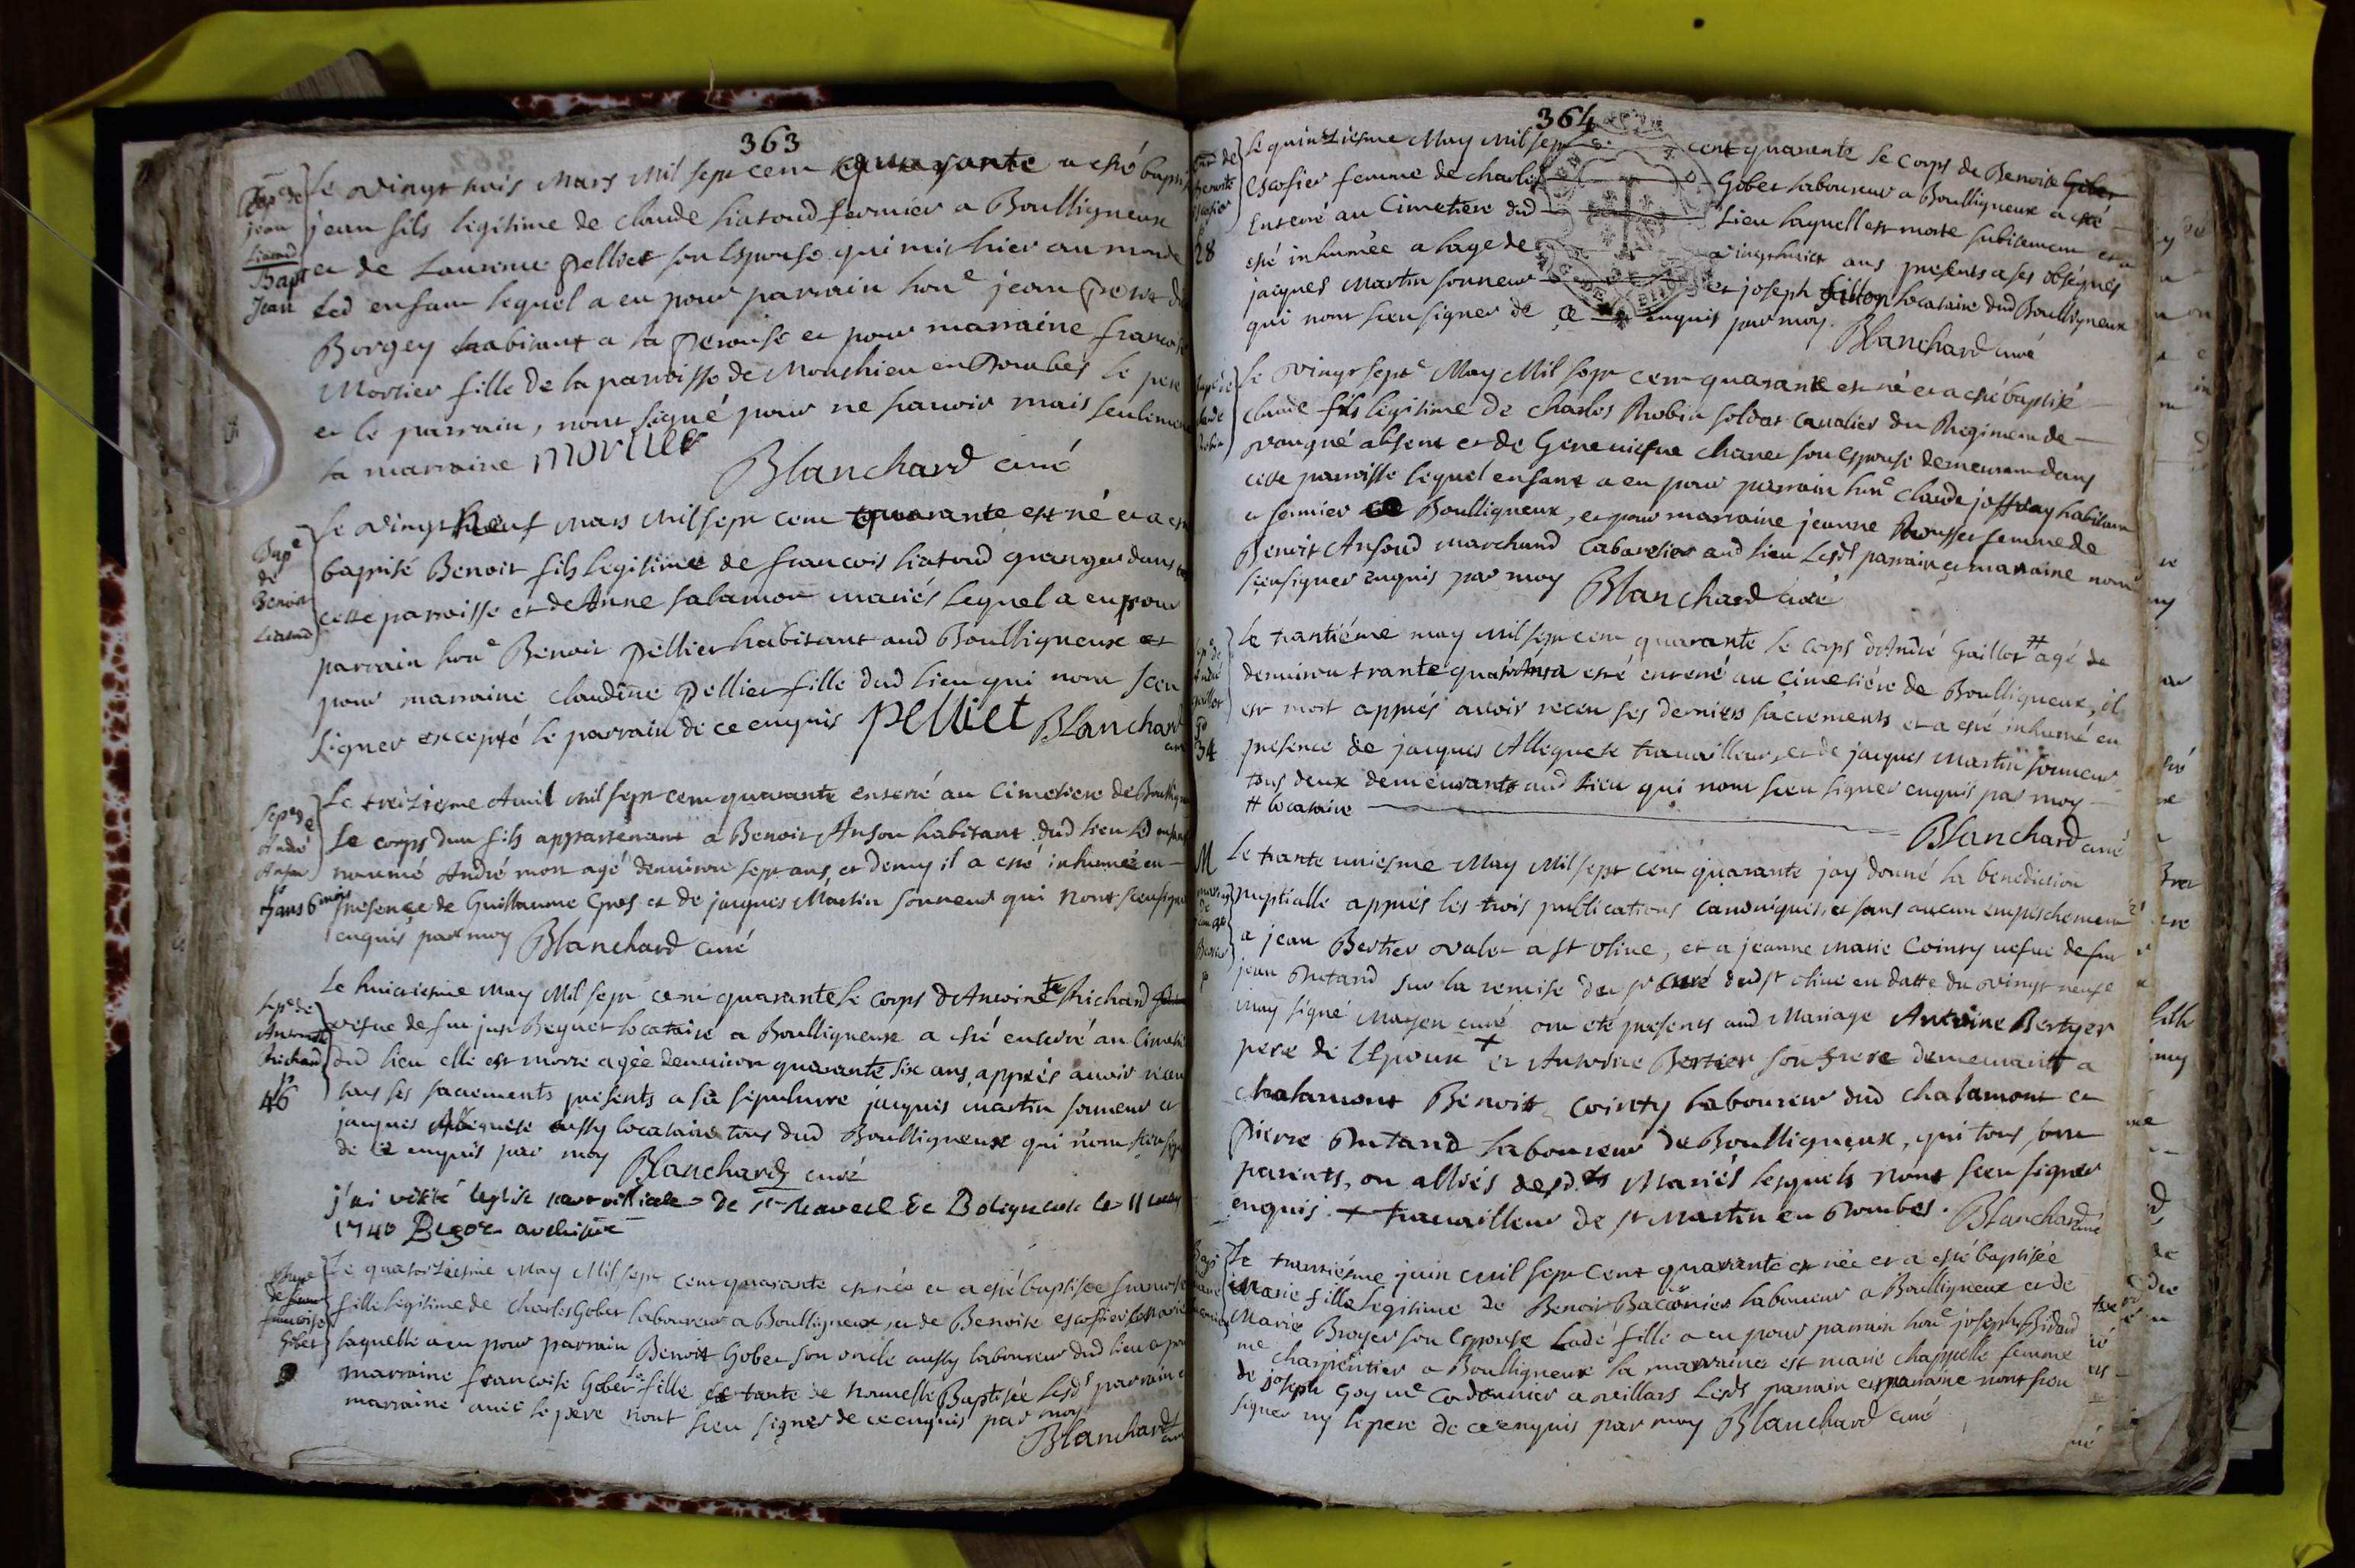 363
Bap^e de
jean
Liatoud
Bapt
Jean
Le vingt trois Mars Mil sept cent quarante a esté bapti
jean fils legitime de claude Liatoud fermier a Boulligneux
et de Laurence pelliet son Espouse qui mit hier au monde
led enfant lequel a eu pour parrain hon^e jean
Borgey habitant a la perouse et pour marraine francoise
Mortier fille de la parroisse de Monthieu en Dombes le pere
et le parrain, n'ont signé pour ne scavoir mais seulement
la marraine mortier
Blanchard curé
Bap^e
de
Benoit
Liatoud
Le vingt neuf Mars Mil sept cent quarante est né et a esté
baptisé Benoit fils legitime de francois Liatoud granger dans
cette parroisse et de Anne salamon mariés lequel a eu pour
parrain hon^e Benoit pelliet habitant aud Boulligneux et
pour marraine claudine pelliet fille dud lieu qui n'ont sceu
signer excepté le parrain de ce enquis pelliet Blanchard
Sep^re de
André
Anson
7 ans 6 mois
Le treizieme Avril Mil sept cent quarante enterré au Cimetiere de Boullign
Le corps d'un fils appartenant a Benoit Anson habitant dud lieu led enfant
nommé André mort agé denviron sept ans et demy il a esté inhumée en
presence de Guillaume Gros et de jacques Martin sonneur qui n'ont sceu signer
enquis par moy Blanchard curé
Sep^re de
Antoinette
Richard
46
Le huictiesme May Mil sept cent quarante le corps d'Antoinette Richard
vefue de feu Beguet locataire a Boulligneux a esté enterré au Cimetie
dud lieu elle est morte agée denviron quarante six ans, apprés auoir receu
tous ses sacements presents a sa sepulture jacques martin sonneur et
jacques Alleguese aussy locataire tous dud Boulligneux qui n'ont sceu signer
de ce enquis par moy Blanchard curé
j'ai visité l'eglise parroissiale de s^t marcel de Boligneux le 11 may
1740
Bap^e
francoise
Gobet
Le quatorziesme May Mil sept cent quarante est née et a esté baptisée francoise
fille legitime de Charles Gobet laboureur a Boulligneux, et de Benoite escofier
laquelle a eu pour parrain Benoit Gobet son oncle aussy laboureur dud lieu et pour
marraine francoise Gobet fille et tante de nouvelle Baptisée Lesd^s parrain et
marraine avec le pere n'ont sceu signer de ce enquis par moy
Blanchard
364
Benoite
28
Le quinziesme May Mil sept cent quarante le corps de Benoite
Escofier femme de charles Gobet laboureur a Boulligneux a esté
Enterré au Cimetiere dud Lieu laquelle est morte subitement et a
esté inhumée a lage de vingt huict ans presents a ses obseques
jacques Martin sonneur et joseph locataire dud Boulligneux
qui n'ont sceu signer de ce enquis par moy Blanchard curé
Le vingt sept^e May Mil sept cent quarante est né et a esté baptisé
claude fils legitime de charles Robin soldat cavalier du Regiment de
absent et de Geneviefue chanet son Espouse demeurant dans
cette parroisse lequel enfant a eu pour parrain hon^e claude joffray habitant
et fermier Boulligneux, et pour marraine jeanne Rousset femme de
Benoit Ansoud marchand Cabaretier aud lieu Lesd^s parrain et marraine n'ont
sceu signer enquis par moy Blanchard curé
34
Le trantiéme may Mil sept cent quarante le corps d'André Gaillot # agé de
denuiron trante quatre Ans a esté enterré au Cimetiére de Boulligneux, il
est mort apprés auoir receu ses derniers sacrements et a esté inhumé en
presence de jacques Alleguese trauailleur, et de jacques Martin sonneur
tous deux demeurants aud Lieu qui n'ont sceu signer enquis par moy
# locataire
Blanchard curé
M
Le trante uniesme May Mil sept cent quarante jay donné la benediction
nuptialle apprés les trois publications canoniques, et sans aucun empeschement
a jean Bertier valet a s^t olive, et a jeanne marie Cointy vefue de feu
jean Butand sur la remise du s^r curé dud s^t olive en datte du vingt neuf
may signé Mayen curé ont eté presents aud Mariage Antoine Bertyer
pere de l'Epoux + et Antoine Bertier son frere demeurant a
chalamont Benoitt Cointy laboureur dud chalamont et
pierre Butand laboureur de Boulligneux, qui tous sont
parents, ou alliés desd^ts Mariés lesquels n'ont sceu signer
enquis. + trauailleur de s^t Martin en Dombes. Blanchard curé
Le troisiesme juin Mil sept cent quarante est née et a esté baptisée
Marie fille legitime de Benoit Baconier laboureur a Boulligneux et de
Marie Broyer son Espouse Lad^e fille a eu pour parrain hon^e joseph Bidaud
m^e charpentier a Boulligneux la marraine est marie chappelle femme
de joseph Goy m^e Cordonnier a villars Lesd^s parrain et maraine n'ont sceu
signer ny le pere de ce enquis par moy Blanchard curé